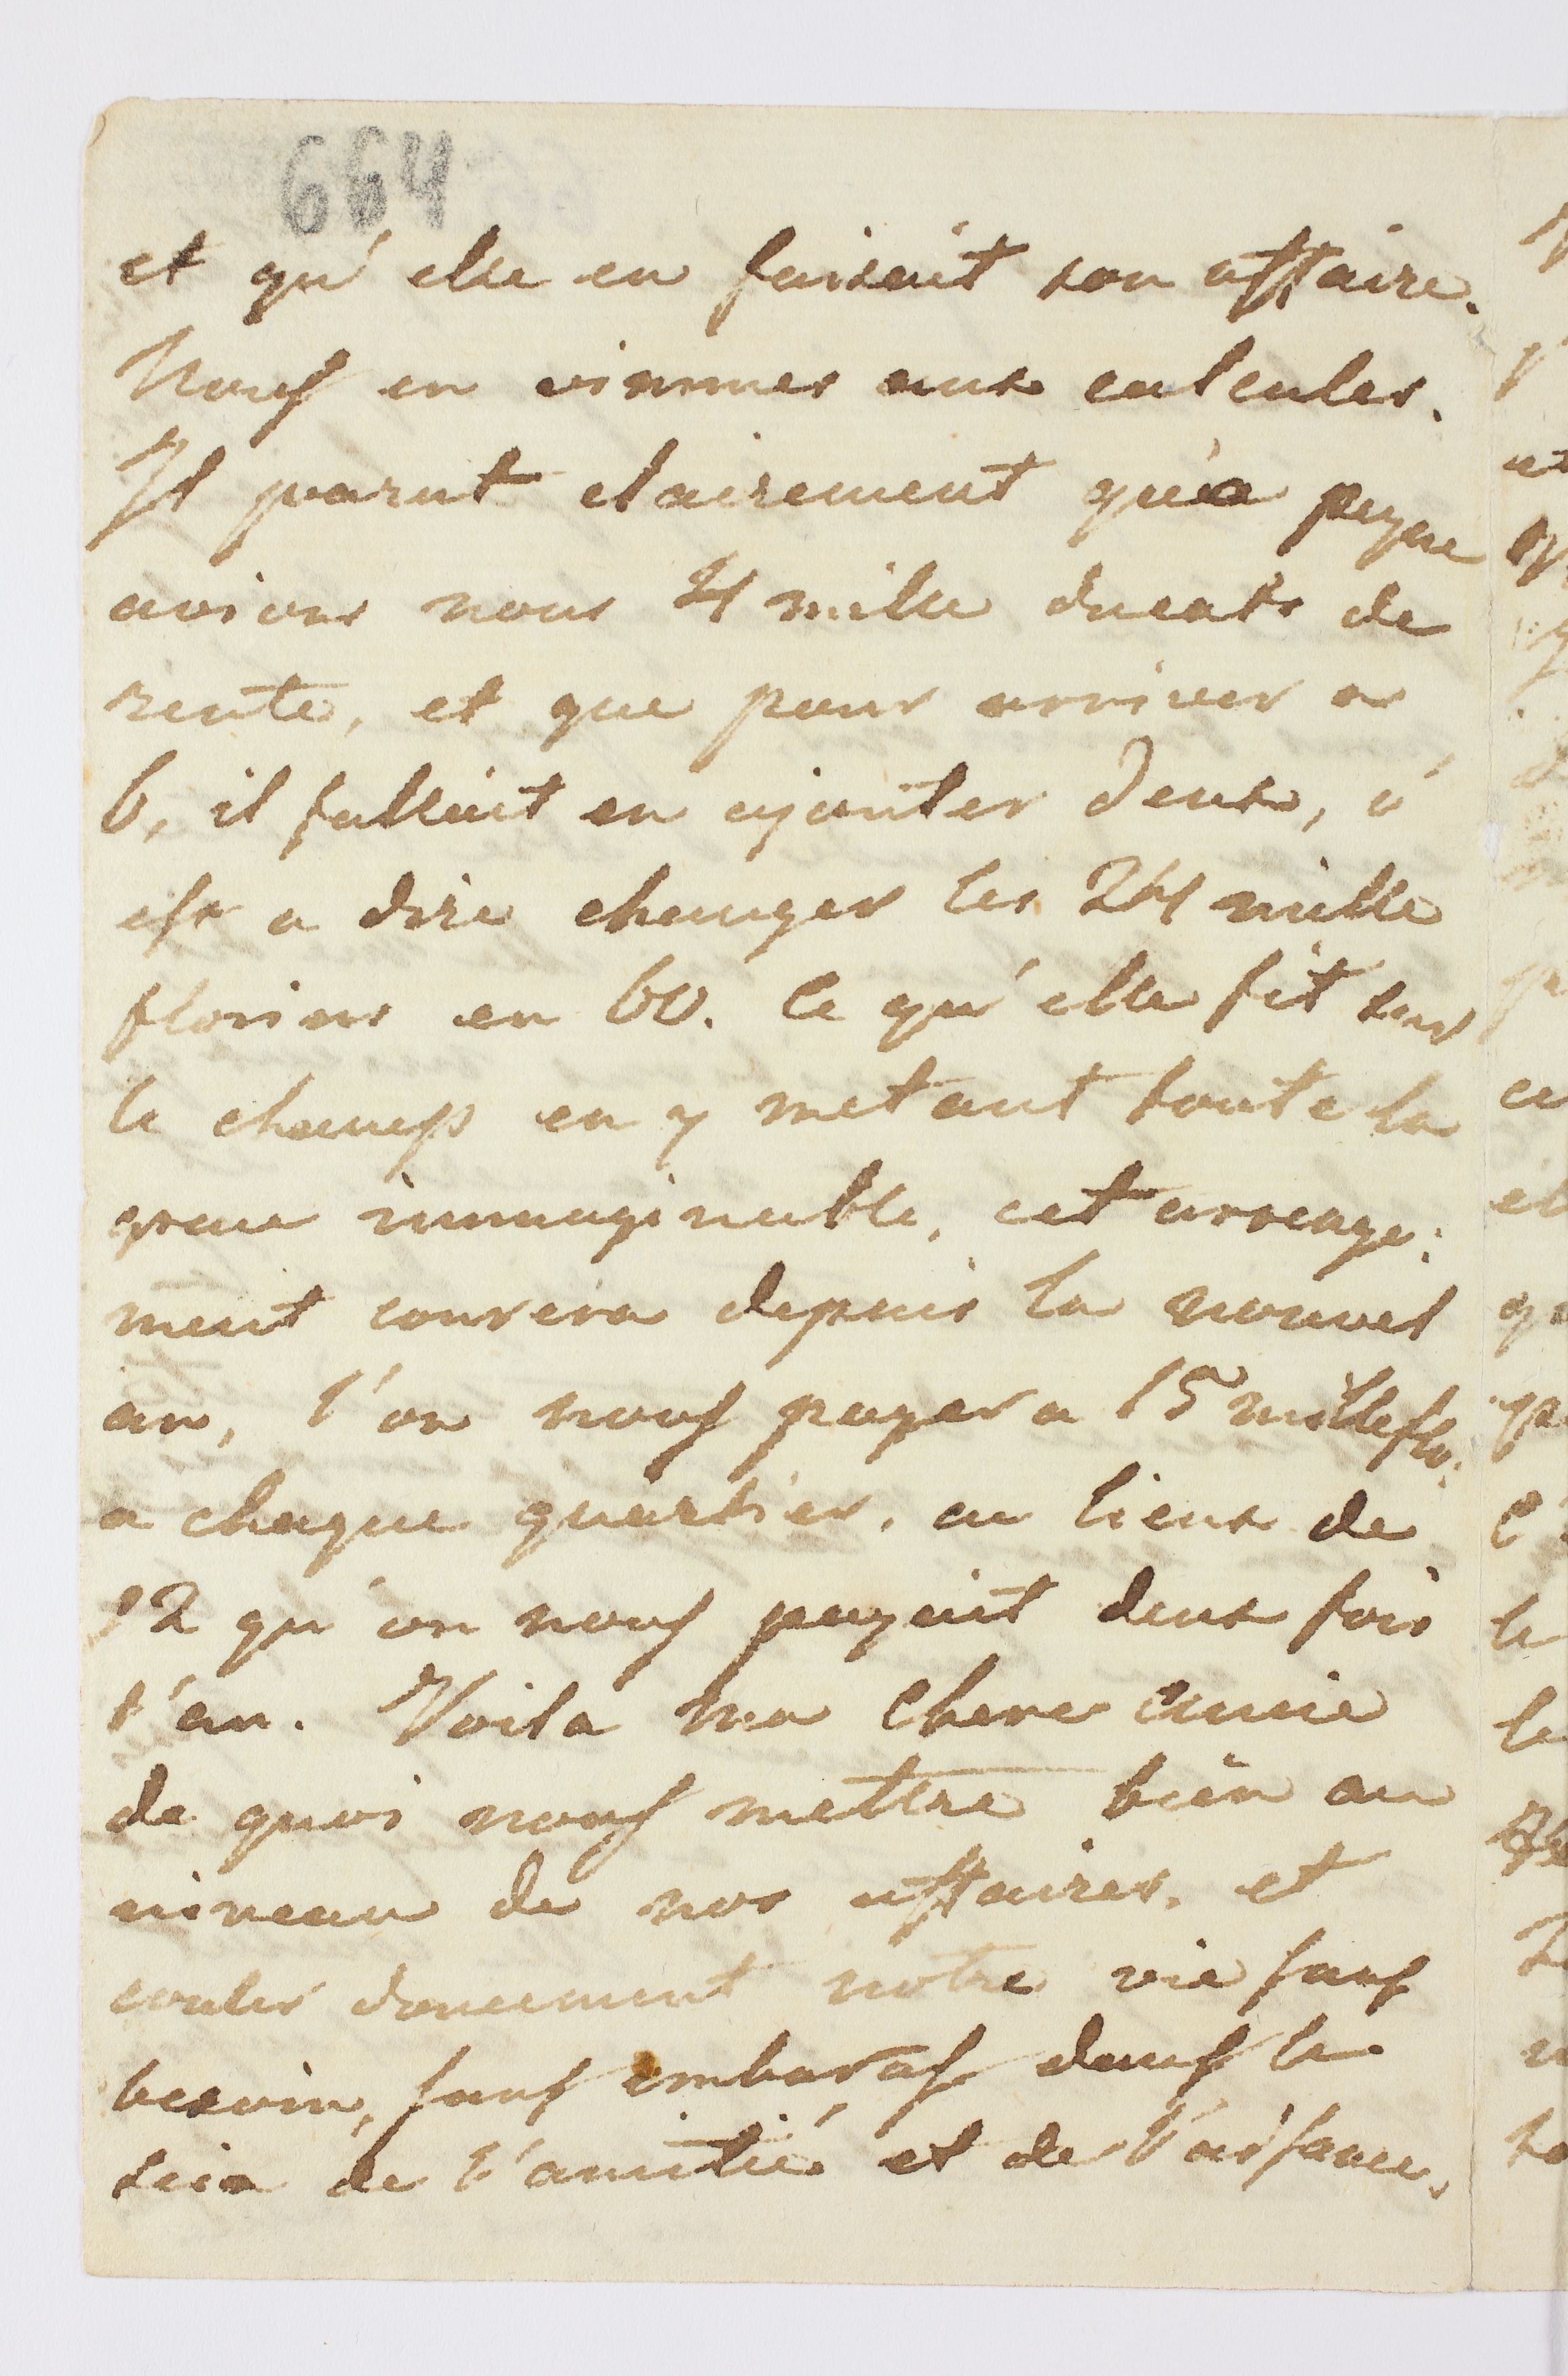 664
et qu'elle en faisait son affaire.
Nous en vinmes aux calcules.
Il parut clairement qu'a peyne
avions nous 4 mille ducats de
rente, et que pour arriver a
6, il fallait en ajouter deux, c'
est a dire changer les 24 mille
florins en 60. Ce qu'elle fit sur
le champs en y metant toute la
grace immaginable, cet arrange:
ment courera depuis la nouvel
an, l'on nous payera 15 mille flo:
a chaque quartier, au lieux de
12 qu'on nous payait deux fois
l'an. Voila ma Chere amie
de quoi nous mettre bien au
niveau de nos affaires, et
couler doucement notre vie sans
besoin, sans embaras dans le
sein de l'amitié et de l'aisance.